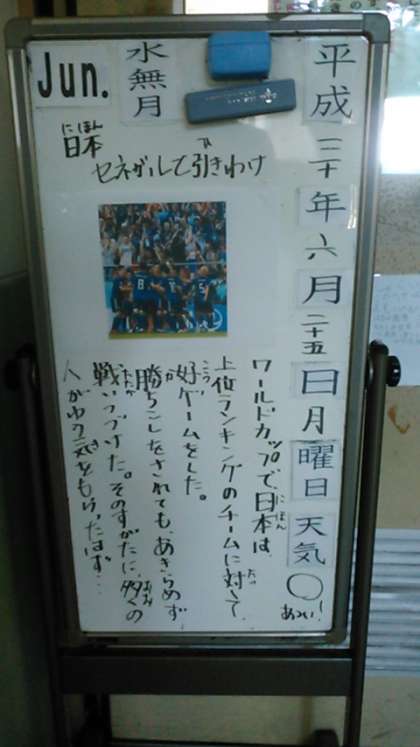 Jun.
水無月
平成三十年六月二十五日月曜日天気○
あつい!
にほん
日本
セネガルして引きわけ
ひ
ワールドカップで、日本は、
にほん
上位ランキングのチームに対して、
たい
好ゲームをした。
こう
勝ちこしをされても、あきらめず
か
戦いつづけた。そのすがたに、多くの
たたか
おお
人がゆう気をもらったはず…
き